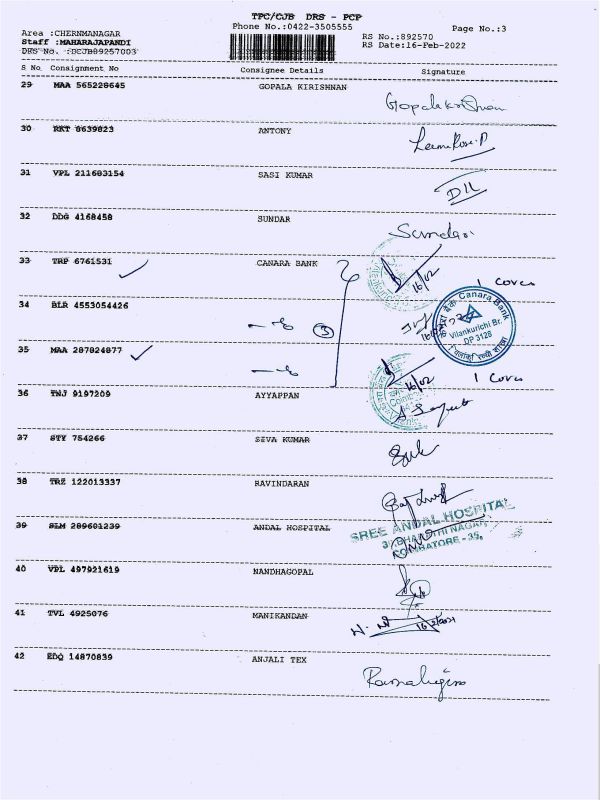 TPC/CJB DRS - PCP
Phone No.:0422-3505555
Page No.:3
Area :CHERNMANAGAR
RS No.:892570
Staff :MAHARAJAPANDI
RS Date:16-Feb-2022
DRS No. :DCJB89257003
S No Consignment No Consignee Details Signature
29 MAA 565228645 GOPALA KIRISHNAN Gopalakrishnan
30 RKT 8639823 ANTONY
31 VPL 211683154 SASI KUMAR
32 DDG 4168458 SUNDAR Sundari
33 TRP 6761531 CANARA BANK 16/02 1 Cover
34 BLR 4553054426 3
Canara Bank
Vilankurichi Br.
DP 3128
35 MAA 287824877 16/02 1 Cover
36 TNJ 9197209 AYYAPPAN
37 STY 754266 SIVA KUMAR
38 TRZ 122013337 RAVINDARAN
39 SLM 289601239 ANDAL HOSPITAL
SREE ANDAL HOSPITAL
COIMBATORE - 35.
40 VPL 497921619 NANDHAGOPAL
41 TVL 4925076 MANIKANDAN
42 EDQ 14870839 ANJALI TEX